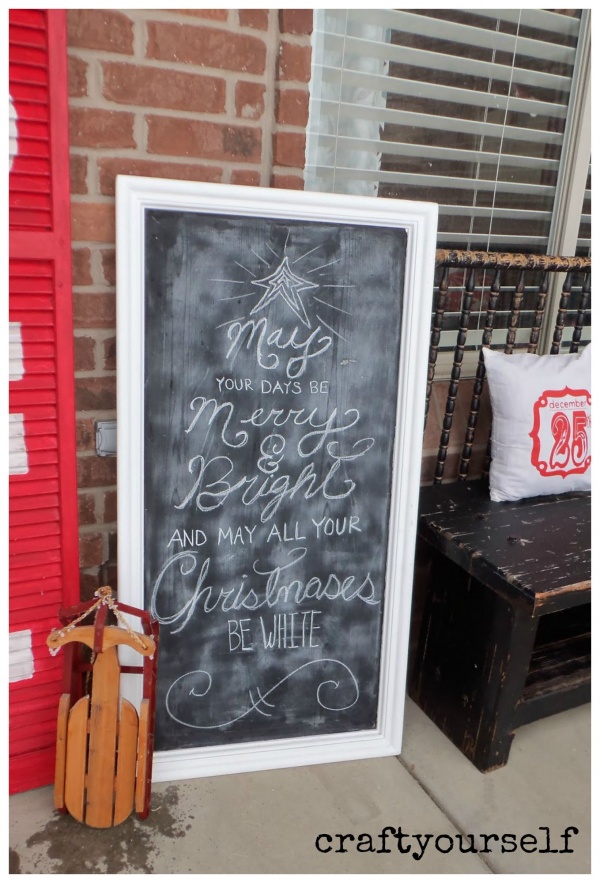 May
YOUR DAYS BE
Merry
&
Bright
AND MAY ALL YOUR
Christmases
BE WHITE
december
25
craftyourself